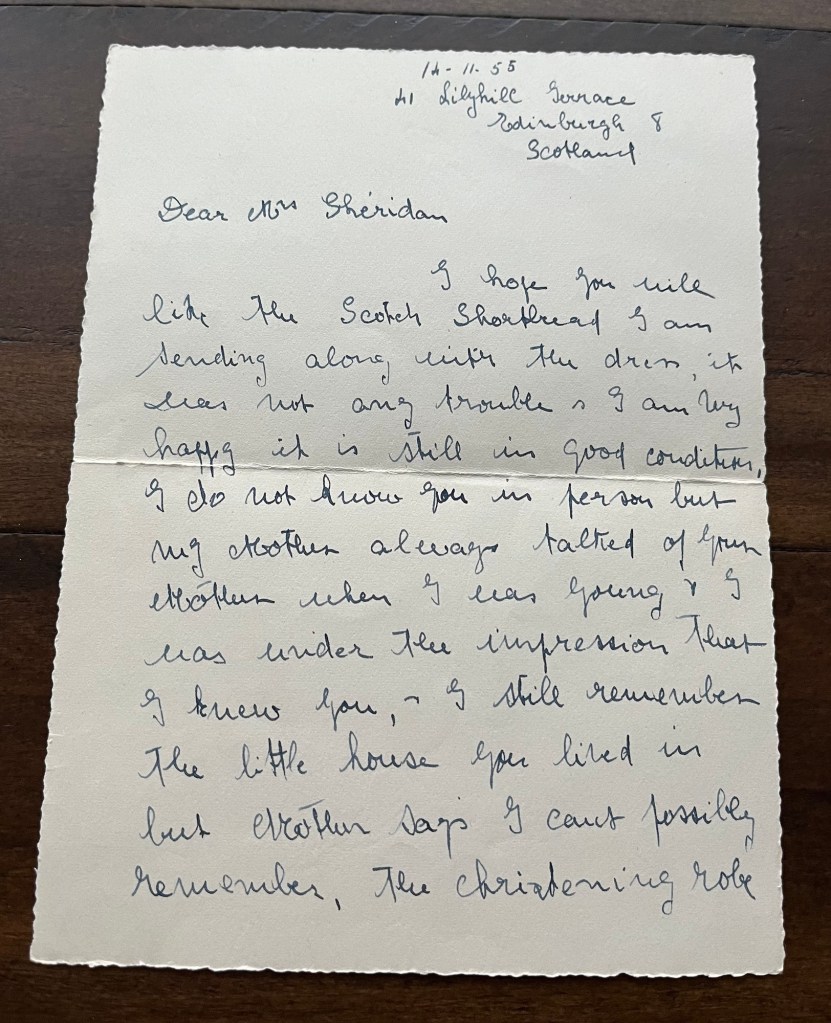 14-11-55
41 Lilyhill Terrace
Edinburgh 8
Scotland
Dear Mrs Sheridan
I hope you will
like the Scotch Shortbread I am
sending along with the dress, it
was not any trouble & I am very
happy it is still in good condition,
I do not know you in person but
my Mother always talked of your
Mother when I was young & I
was under the impression that
I knew you, - I still remember
the little house you lived in
but Mother says I cant possibly
remember, The christening robe